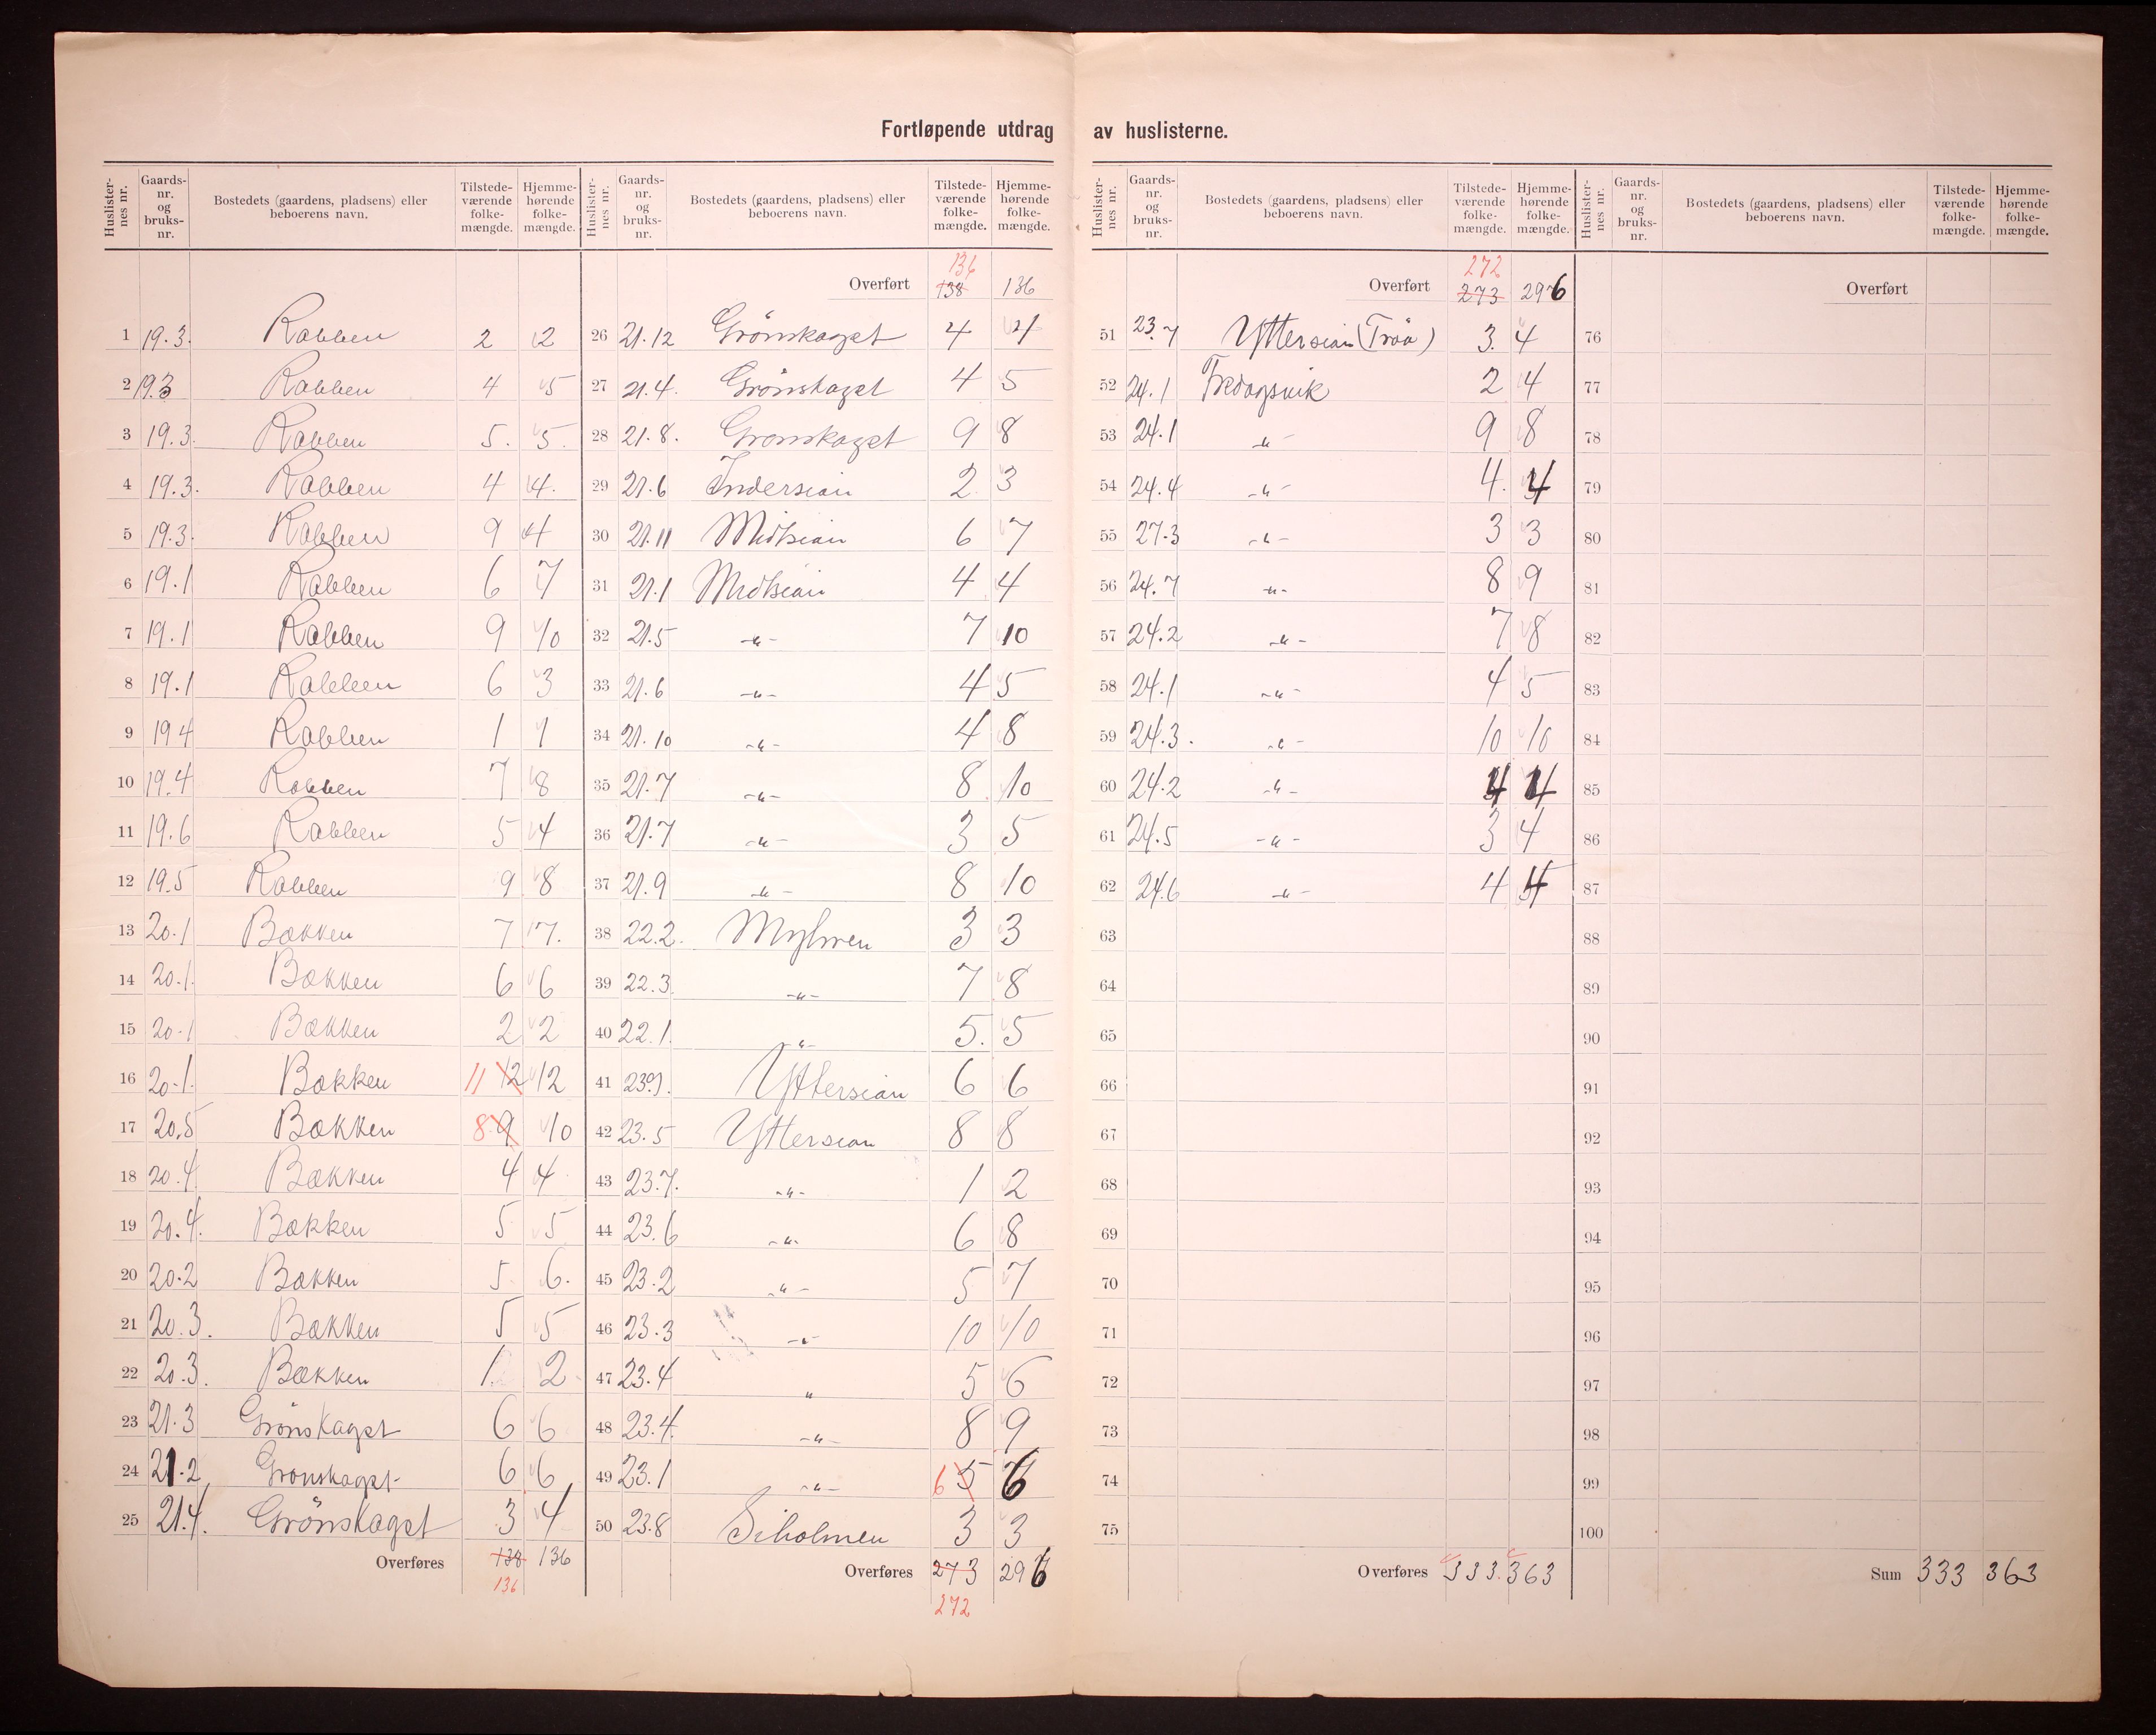 Fortløpende utdrag av huslisterne.
Huslister-nes nr. Gaards-nr. og bruks-nr. Bostedets (gaardens, pladsens) eller beboerens navn. Tilstede-værende folke-mængde. Hjemme-hørende folke-mængde.
1 19.3. Rabben 2 2
2 19.3 Rabben 4 5
3 19.3. Rabben 5. 5.
4 19.3. Rabben 4 4.
5 19.3. Rabben 9 4
6 19.1 Rabben 6 7
7 19.1 Rabben 9 10
8 19.1 Rabben 6 3
9 19 4 Rabben 1 1
10 19.4 Rabben 7 8
11 19.6 Rabben 5 4
12 19.5 Rabben 9 8
13 20.1 Bækken 7 7.
14 20.1. Bækken 6 6
15 20.1 Bækken 2 2
16 20.1. Bækken 11 12 12
17 20.5 Bækken 8 9 10
18 20.4 Bækken 4 4
19 20.4. Bækken 5 5
20 20.2 Bækken 5 6.
21 20.3. Bækken 5 5
22 20.3. Bækken 1 2
23 21.3 Grönskaget 6 6
24 21.2 Grönskaget 6 6
25 21.4. Grönskaget 3 4
Overføres 138 136
136
Huslister-nes nr. Gaards-nr. og bruks-nr. Bostedets (gaardens, pladsens) eller beboerens navn. Tilstede-værende folke-mængde. Hjemme-hørende folke-mængde.
136
Overført 138 136
26 21.12 Grönskaget 4 4
27 21.4. Grönskaget 4 5
28 21.8. Grönskaget 9 8
29 21.6 Indersian 2 3
30 21.11 Midtsian 6 7
31 21.1 Midtsian 4 4
32 21.5 -"- 7 10
33 21.6 -"- 4 5
34 21.10 -"- 4 8
35 21.7 -"- 8 10
36 21.7 -"- 3 5
37 21.9 -"- 8 10
38 22.2. Myhren 3 3
39 22.3. -"- 7 8
40 22.1. -"- 5. 5
41 Yttersian 6 6
42 23.5 Yttersian 8 8
43 23.7. -"- 1 2
44 23.6 -"- 6 8
45 23.2 -"- 5 7
46 23.3 -"- 10 10
47 23.4 " 5 6
48 23.4. -"- 8 9
49 23.1 -"- 6 5 6
50 23.8 Siholmen 3 3
Overføres 273 296
272
Huslister-nes nr. Gaards-nr. og bruks-nr. Bostedets (gaardens, pladsens) eller beboerens navn. Tilstede-værende folke-mængde. Hjemme-hørende folke-mængde.
272
Overført 273 296
51 23.7 Yttersian (Tröa) 3. 4
52 24.1 Fredagsvik 2 4
53 24.1 -"- 9 8
54 24.4 -"- 4. 4
55 27.3 -"- 3 3
56 24.7 -"- 8 9
57 24.2 -"- 7 8
58 24.1 -"- 4 5
59 24.3. -"- 10 10
60 24.2 -"- 4 4
61 24.5 -"- 3 4
62 24.6 -"- 4 4
63
64
65
66
67
68
69
70
71
72
73
74
75
Overføres 333. 363
Huslister-nes nr. Gaards-nr. og bruks-nr. Bostedets (gaardens, pladsens) eller beboerens navn. Tilstede-værende folke-mængde. Hjemme-hørende folke-mængde.
Overført
76
77
78
79
80
81
82
83
84
85
86
87
88
89
90
91
92
93
94
95
96
97
98
99
100
Sum 333 363